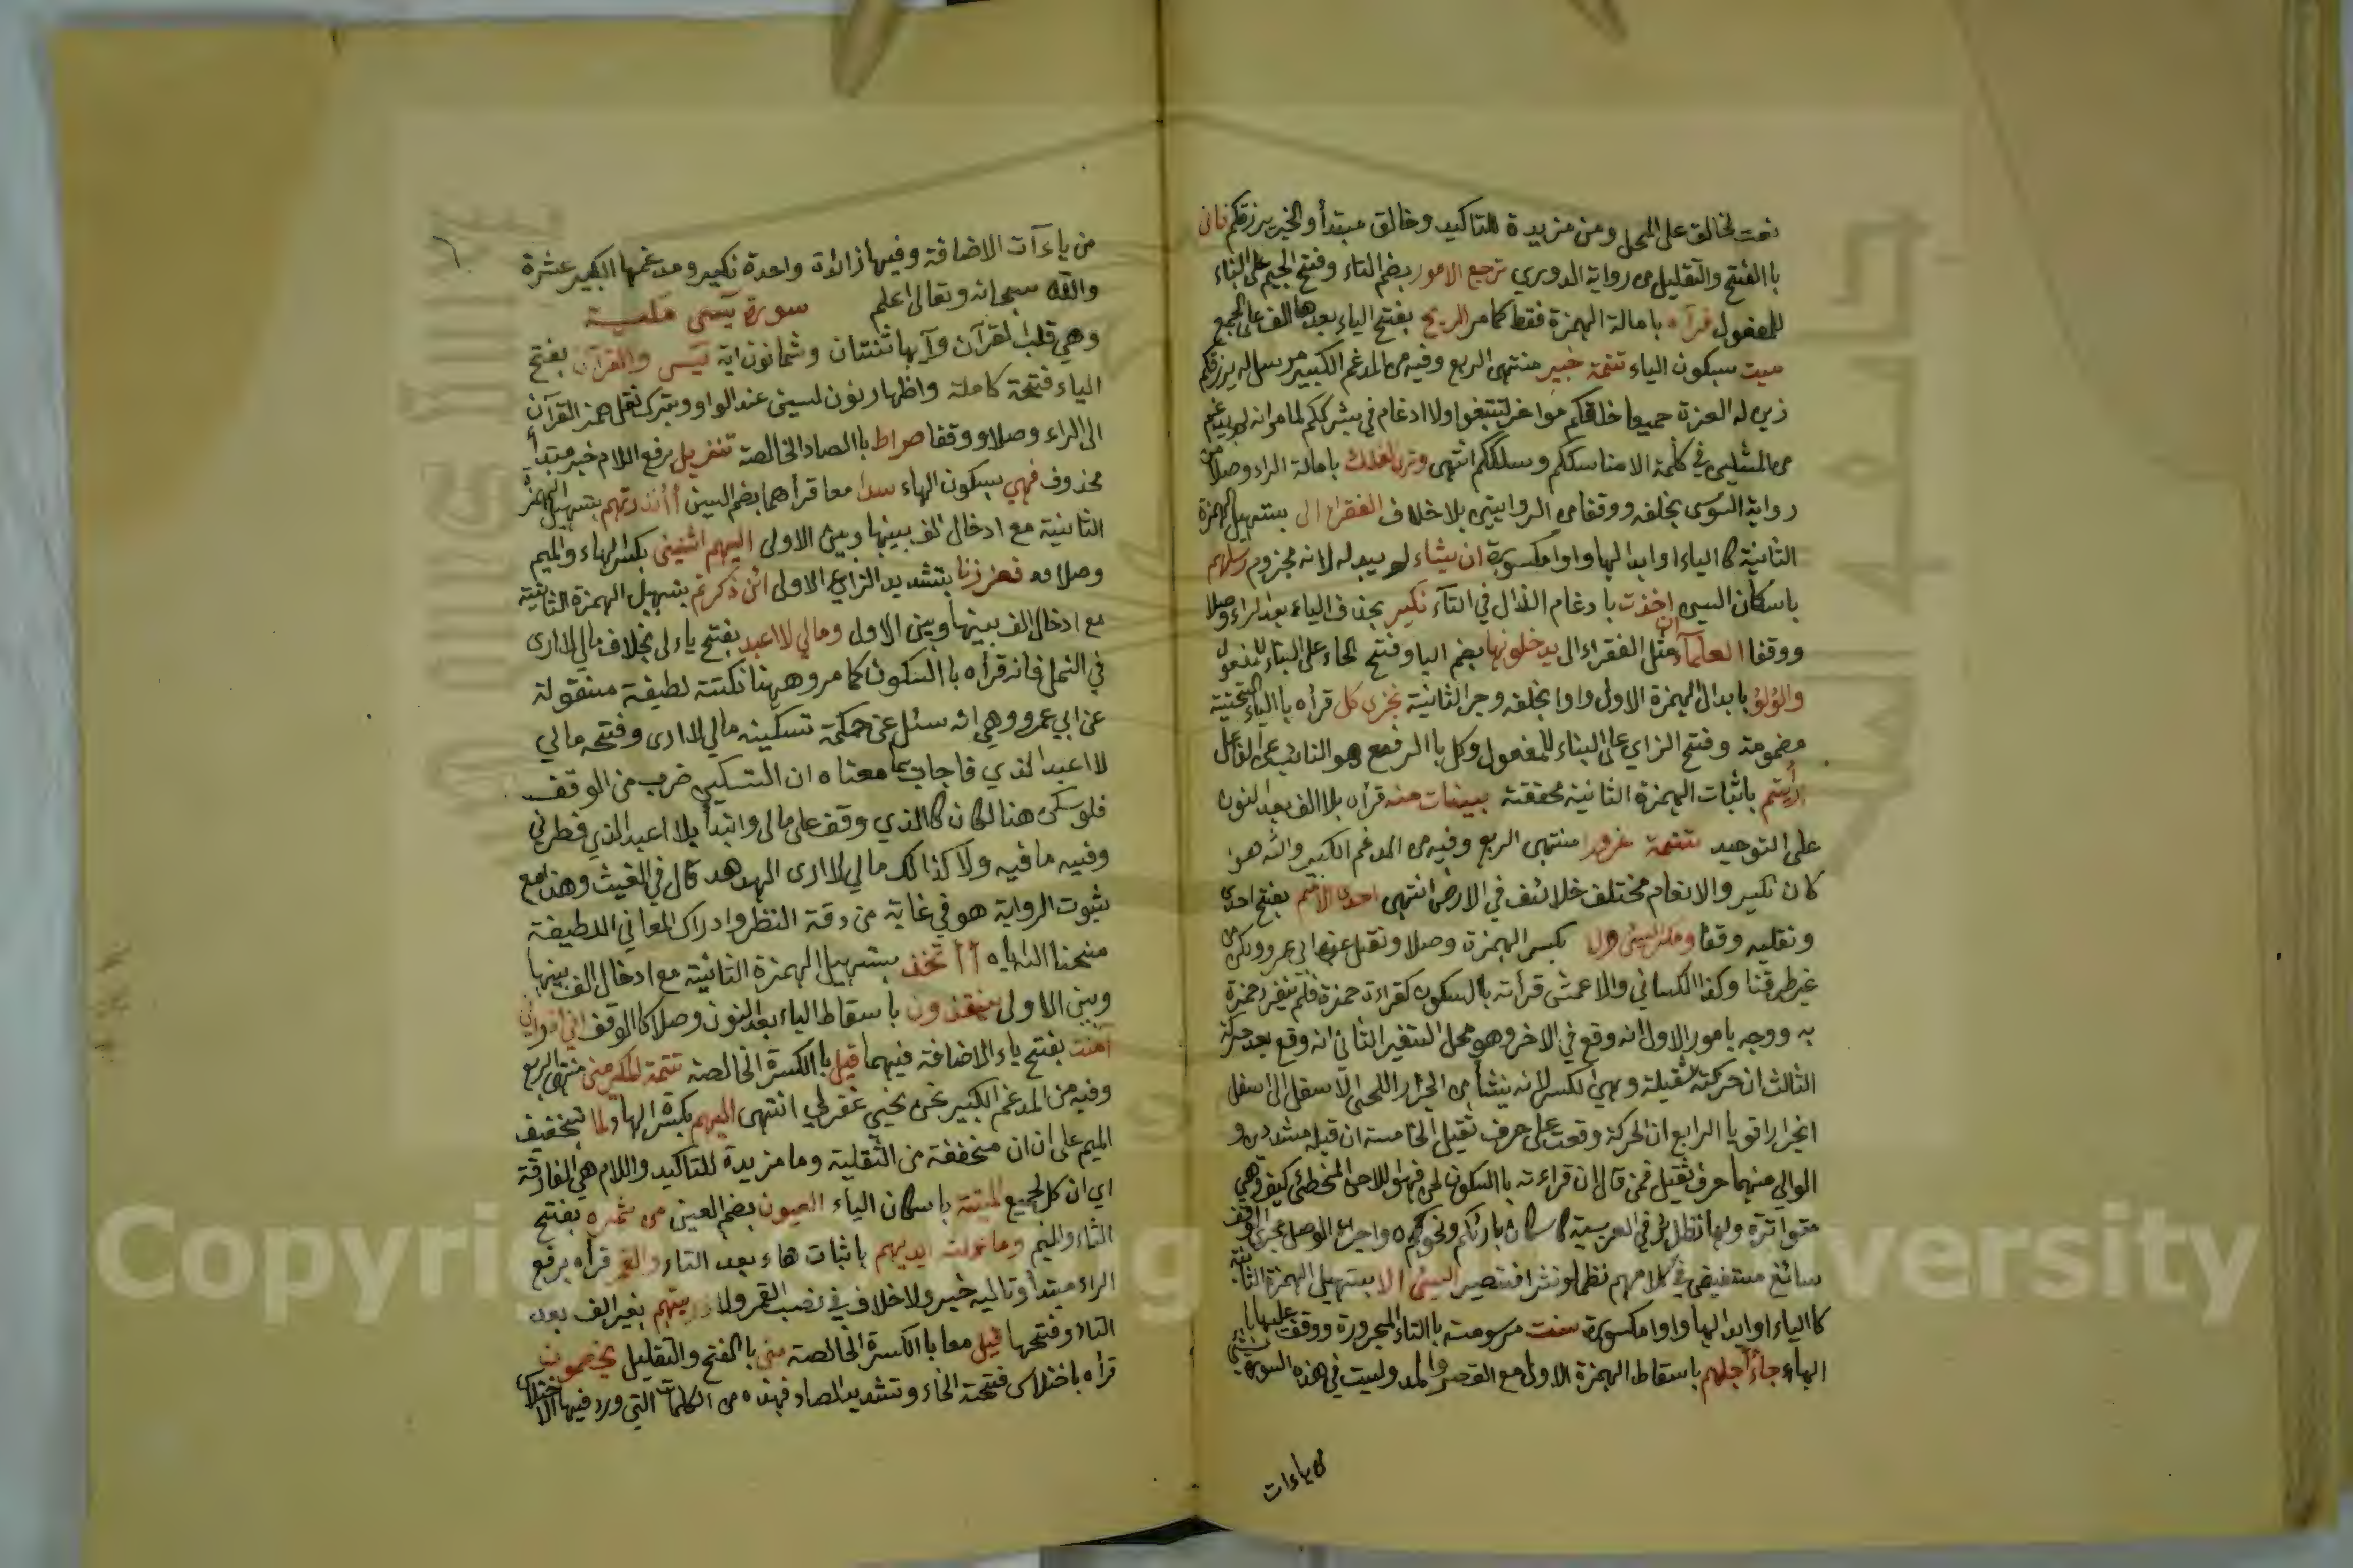 نعت لخالق على المحل ومن مزيدة للتاكيد وخالق مبتدأ والخبر يرزقكم فانى
باالفتح والتقليل من رواية الدوري ترجع الامور بضم التاء وفتح الجيم على البناء
للمفعول فرآه بامالة الهمزة فقط كما مر الريح بفتح الياء بعدها الف على الجمع
ميت بسكون الياء تتمة خبير منتهى الربع وفيه من المدغم الكبير مرسل له يرزقكم
زين له العزة جميعا خلقكم مواخر لتبتغوا ولا ادغام في بشرككم لما مر انه لم يدغم
من المثلين في كلمة الا مناسككم وسلككم انتهى وترى الفلك بامالة الراء وصلا من
رواية السوسى بخلفه ووقفا من الروايتين بلا خلاف الفقراء الى بتسهيل الهمزة
الثانية كالياء او ابدالها واوا مكسورة ان يشاء لم يبدله لانه مجزوم رسلهم
باسكان السين اخذت بادغام الذال في التاء نكير بحذف الياء بعد الراء وصلا
ووقفا العلمآء ان مثل الفقراء الى يدخلونها بضم اليا وفتح الخاء على البناء للمفعول
ولؤلؤ بابدال الهمزة الاولى واوا بخلفه وجر الثانية نجزى كل قرأه بالياء التحتية
مضمومة وفتح الزاي على البناء للمفعول وكل باالرفع هو النائب عن الفاعل
أرأيتم باثبات الهمزة الثانية محققة بينات منه قرأه بلا الف بعد النون
على التوحيد تتمة غرورا منتهى الربع وفيه من المدغم الكبير والله هو
كان نكير والانعام مختلف خلائف في الارض انتهى احدى الامم بفتح احدى
وتقليه وقفا ومكر السيئ ولا بكسر الهمزة وصلا ونقل عن ابى عمرو ولكن من
غير طرقنا وكذا الكسائي والاعمش قرأته باالسكون كقراءة حمزة فلم تنفرد حمزة
به ووجه بامور الاول انه وقع في الاخر وهو محل التغير الثاني انه وقع بعد حركة
الثالث ان حركته ثقيلة وهي الكسر لانه ينشأ من انجرار اللحى الاسفل الى اسفل
انجرارا قويا الرابع ان الحركة وقعت على حرف ثقيل الخامسة ان قبله مشددين و
الوالي منهما حرف ثقيل فمن قال ان قراءته باالسكون لحن فهو اللاحن المخطئ كيف وهي
متواترة ولها نظائر في العربية كاسكان بارئكم ونحوكم واجراء الوصل مجرى الوقف
سائغ مستفيض في كلامهم نظما ونثرا فتنصير السيئ الا بتسهيل الهمزة الثانية
كالياء او ابدالها واوا مكسورة سنت مرسومة باالتاء المجرورة ووقف عليها با
الهاء جاء اجلهم باسقاط الهمزة الاولى مع القصر والمد وليست في هذه السورة شيئ
من ياءات
من ياءآت الاضافة وفيها زائدة واحدة نكير ومدغمها الكبير عشرة
والله سبحانه وتعالى اعلم سورة يس مكية
وهي قلب القرآن وآيها ثنتان وثمانون اية يس والقرآن بفتح
الياء فتحة كاملة واظهار نون لسين عند الواو وبترك نقل همز القرآن
الى الراء وصلا ووقفا صراط باالصاد الخالصة تنزيل برفع اللام خبر مبتدأ
محذوف فهي بسكون الهاء سدا معا قرأهما بضم السين أأنذرتهم بتسهيل الهمزة
الثانية مع ادخال الف بينها وبين الاولى اليهم اثنين بكسر الهاء والميم
وصلا فعززنا بتشديد الزاي الاولى ائن ذكرتم بتسهيل الهمزة الثانية
مع ادخال الف بينها وبين الاول ومالي لا اعبد بفتح ياء لى بخلاف مالي لا ارى
في النمل فانه قرأه باالسكون كما مر وههنا نكتة لطيفة منقولة
عن ابي عمرو وهي انه سئل عن حكمة تسكينه مالي لا ارى وفتحه مالي
لا اعبد الذي فاجاب بما معناه ان التسكين ضرب من الوقف
فلو سكن هنا لكان كالذي وقف على مالى وابتدأ بلا اعبد الذي فطرني
وفيه ما فيه ولا كذالك مالي لا ارى الهدهد قال في الغيث وهذا مع
ثبوت الرواية هو في غاية من دقة النظر وادراك المعاني اللطيفة
منحنا الله اياه أأتخذ بتسهيل الهمزة الثانية مع ادخال الف بينها
وبين الاولى ينقذون باسقاط الياء بعد النون وصلا كاالوقف اني اني
آمنت بفتح ياء الاضافة فيهما قيل باالكسرة الخالصة تتمة المكرمين منتهى الربع
وفيه من المدغم الكبير نحن نحيي غفر لي انتهى اليهم بكسر الهاء ولما بتخفيف
الميم على ان ان مخففة من الثقيلة وما مزيدة للتاكيد واللام هي الفارقة
اي ان كل لجميع الميتة باسكان الياء العيون بضم العين من ثمره بفتح
الثاء والميم وما عملت ايديهم باثبات هاء بعد التاء والقمر قرأه برفع
الراء مبتدأ وتاليه خبر ولا خلاف في نصب القمر ولا ذريتهم بغير الف بعد
التاء وفتحها قيل معا باالكسرة الخالصة متى باالفتح والتقليل يخصمون
قرأه باختلاس فتحة الخاء وتشديد الصاد فهذه من الكلمات التي ورد فيها الاختلاس
Copyright King University